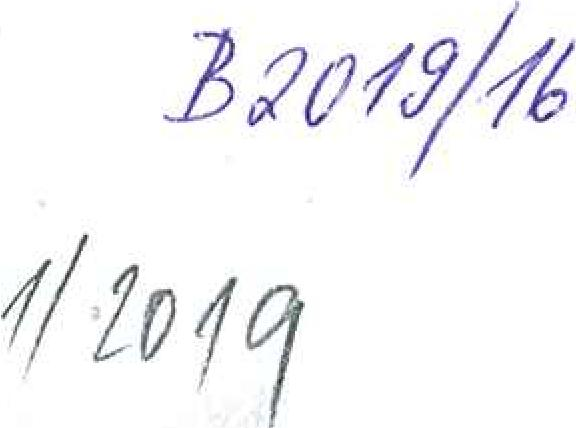 B2019/16
1/2019